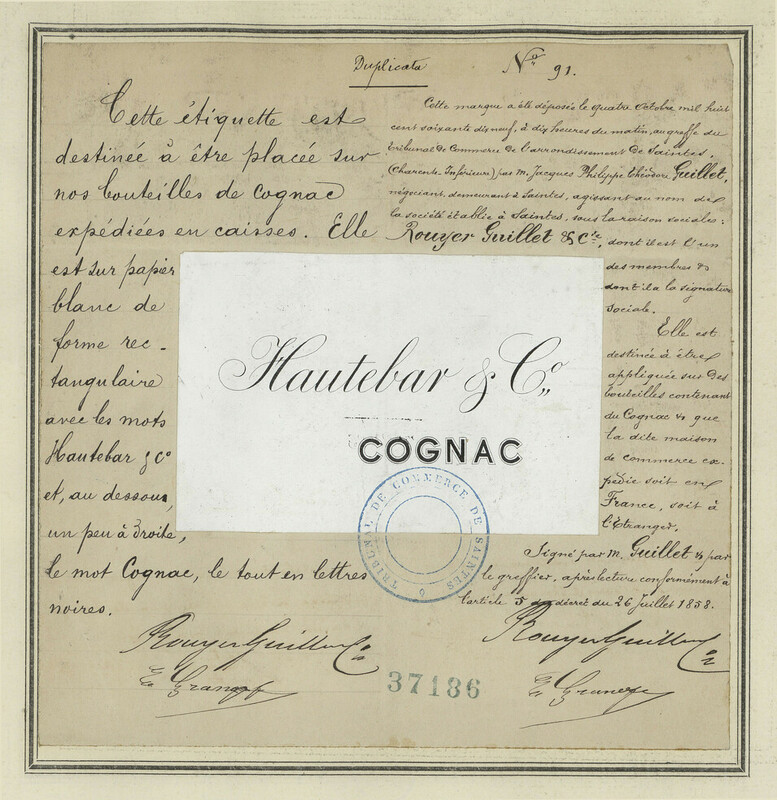 Duplicata
No 91.
Cette étiquette est
destinée à être placée sur
nos bouteilles de cognac
expédiées en caisses. Elle
est sur papier
blanc de
forme rec-
tangulaire
avec les mots
Hautebar & Co
et, au dessous,
un peu à droite,
le mot Cognac, le tout en lettres
noires.
Rouyer Guillet & Co
Cette marque a été déposée le quatre Octobre mil huit
cent soixante dix neuf, à dix heures du matin, au greffe du
Tribunal de Commerce de l'arrondissement de Saintes,
(Charente Inférieure) par M. Jacques Philippe Théodore Guillet,
négociant, demeurant à Saintes, agissant au nom de
la société établie à Saintes, sous la raison sociale:
Rouyer Guillet & Cie, dont il est l'un
des membres &
dont il a la signature
sociale.
Elle est
destinée à être
appliquée sur des
bouteilles contenant
du Cognac & que
la dite maison
de commerce ex-
pédie soit en
France, soit à
l'Etranger.
Signé par M. Guillet & par
le greffier, après lecture conformément à
l'article 5 du décret du 26 Juillet 1858.
Rouyer Guillet & Co
Hautebar & Co
COGNAC
TRIBUNAL DE COMMERCE DE SAINTES
37186